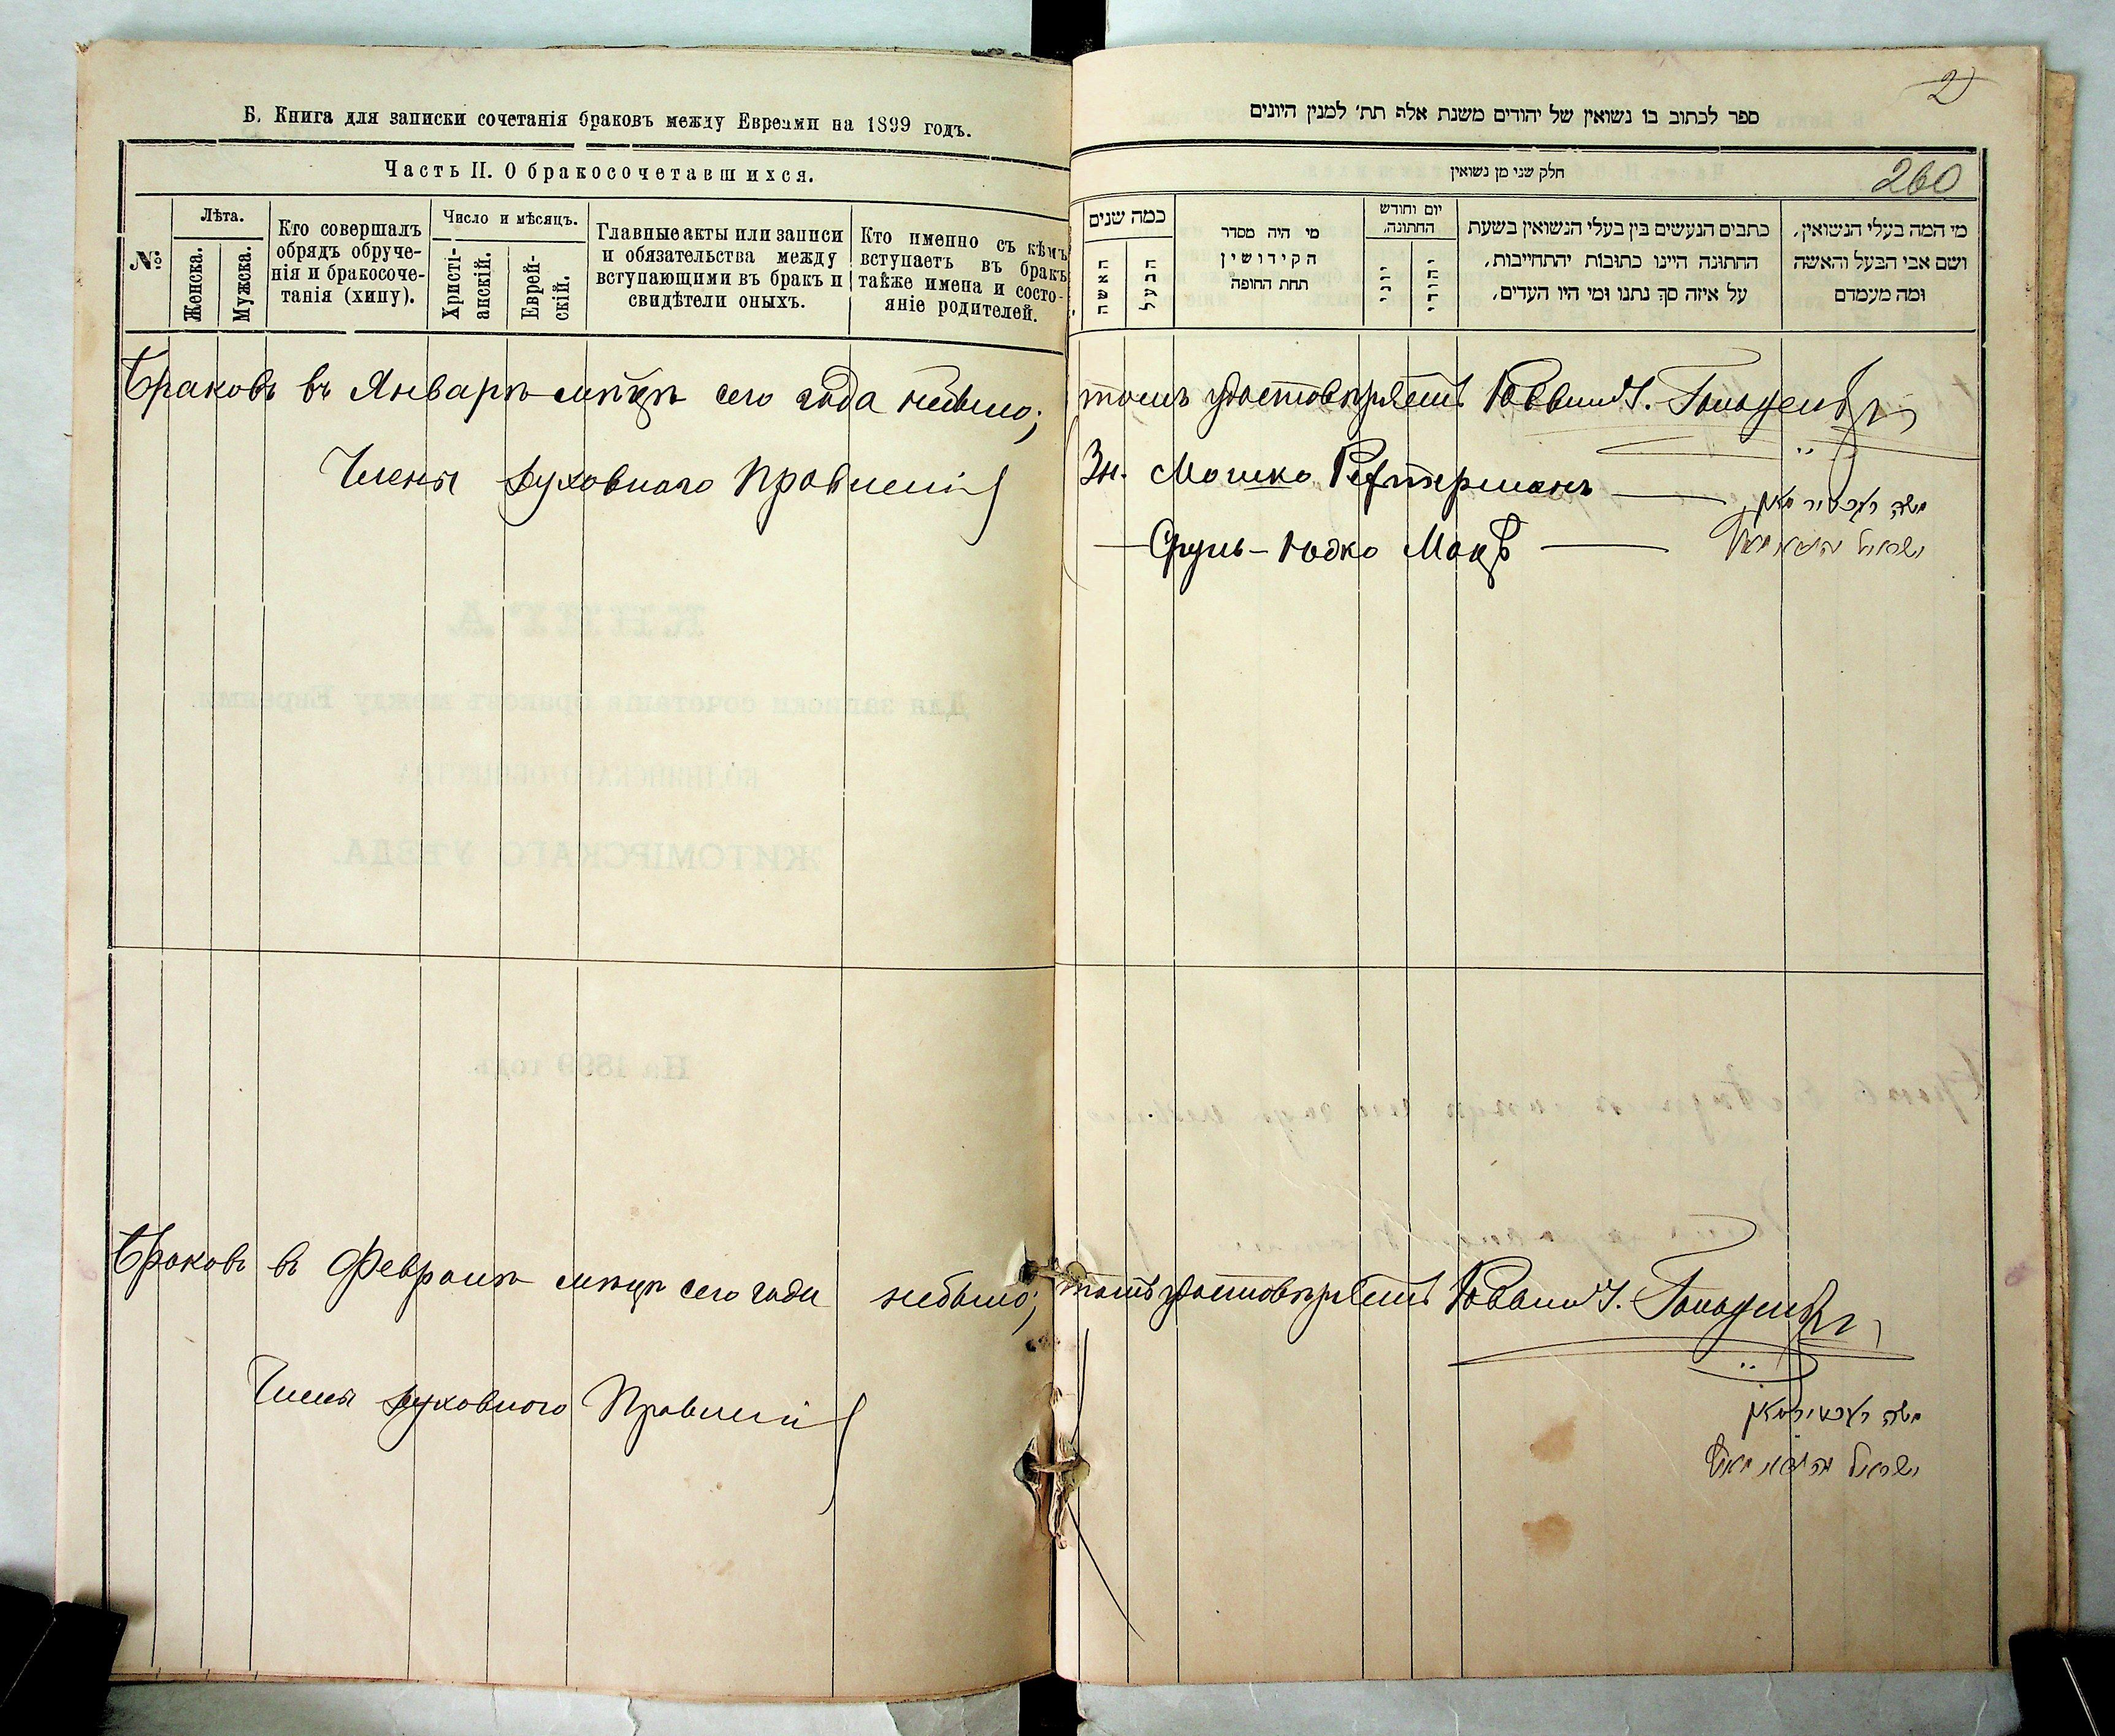 Б. Книга для записки сочетанія браковъ между Евреями на 1899 годъ.
Часть II. О бракосочетавшихся.
№
Лѣта.
Женска.
Мужска.
Кто совершалъ
обрядъ обруче-
нія и бракосоче-
танія (хипу).
Число и мѣсяцъ.
Христі-
анскій.
Еврей-
скій.
Главные акты или записи
и обязательства между
вступающими въ бракъ и
свидѣтели оныхъ.
Кто именно съ кѣмъ
вступаетъ въ бракъ
также имена и состо-
яніе родителей.
Браковъ въ Январѣ мѣсяцѣ сего года небыло;
Члены духовнаго Правленія
Браковъ въ Февралѣ мѣсяцѣ сего года небыло;
Члены духовного Правленія
2
ספר לכתוב בו נשואין של יהודים משנת אלף תת׳ למנין היונים
חלק שני מן נשואין
260
כמה שנים
האשה
הבעל
מי היה מסדר
הקידושין
תחת החופה
יום וחודש
החתונה,
יוני
יהודי
כתבים הנעשים בין בעלי הנשואין בשעת
החתונה היינו כתובות יהתחייבות,
על איזה סך נתנו ומי היו העדים,
מי המה בעלי הנשואין,
ושם אבי הבעל והאשה
ומה מעמדם
томъ удостовѣряетъ Раввинъ
Зн. Мошко Рехтерманъ
Сруль-Юдко Мацъ
משה רעכטירמאן
томъ удостовѣряетъ Раввинъ
משה רעכטירמאן